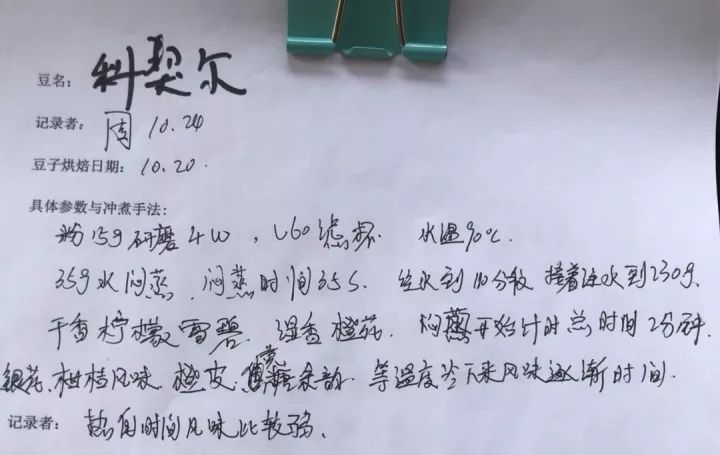 豆名: 科契尔
记录者: 周 10.24
豆子烘焙日期: 10.20.
具体参数与冲煮手法:
粉15g 研磨4W, V60滤杯 水温90℃.
35g水闷蒸, 闷蒸时间35s. 注水到110分段 接着注水到230g.
干香 柠檬雪碧. 湿香 橙花. 闷蒸开始计时总时间2分钟.
柑桔风味, 橙皮, 余韵, 等温度冷下来风味逐渐时间.
记录者: 热的时间风味比较弱.